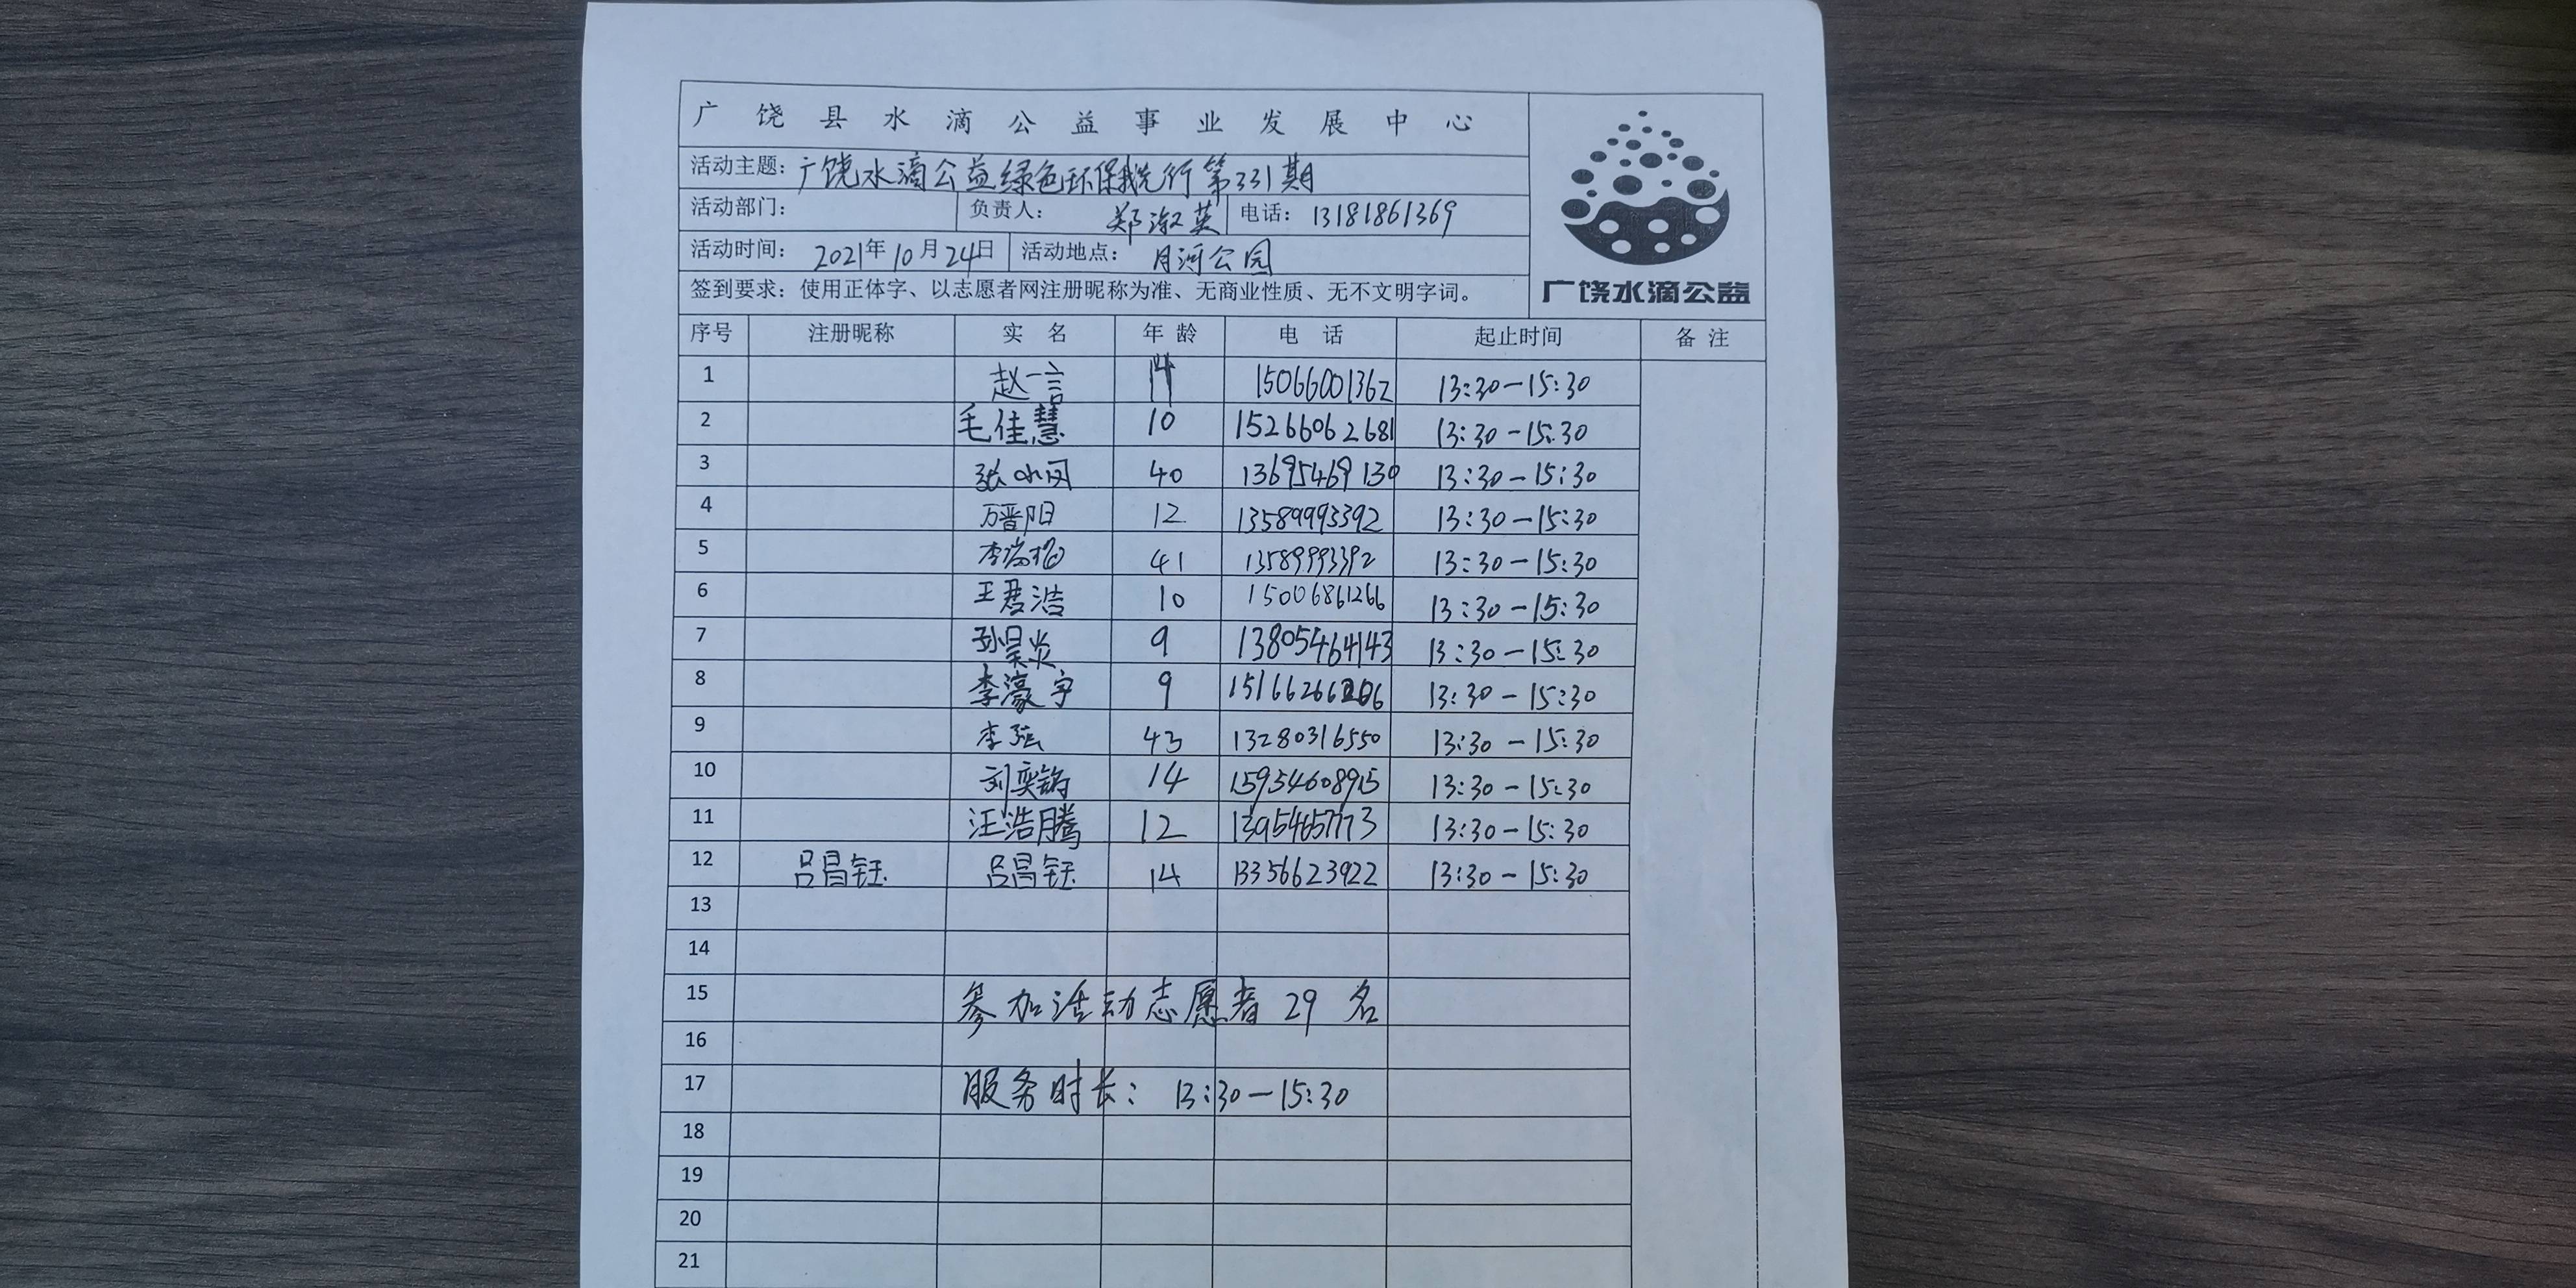 广饶县水滴公益事业发展中心
活动主题：广饶水滴公益绿色环保我先行第331期
活动部门： 负责人：郑淑英 电话：13181861369
活动时间：2021年10月24日 活动地点：月河公园
签到要求：使用正体字、以志愿者网注册昵称为准、无商业性质、无不文明字词。
广饶水滴公益
序号 注册昵称 实 名 年 龄 电 话 起止时间 备 注
1 赵一言 14 15066001362 13:30-15:30
2 毛佳慧 10 15266062681 13:30-15:30
3 40 13695469130 13:30-15:30
4 万晋阳 12 13589993392 13:30-15:30
5 41 13589993392 13:30-15:30
6 王君浩 10 15006861266 13:30-15:30
7 孙昊炎 9 13805464143 13:30-15:30
8 李濠宇 9 13:30-15:30
9 43 13280316550 13:30-15:30
10 14 15954608915 13:30-15:30
11 汪浩腾 12 13954657773 13:30-15:30
12 吕昌钰 吕昌钰 14 13356623922 13:30-15:30
13
14
15 参加活动志愿者29名
16
17 服务时长：13:30-15:30
18
19
20
21